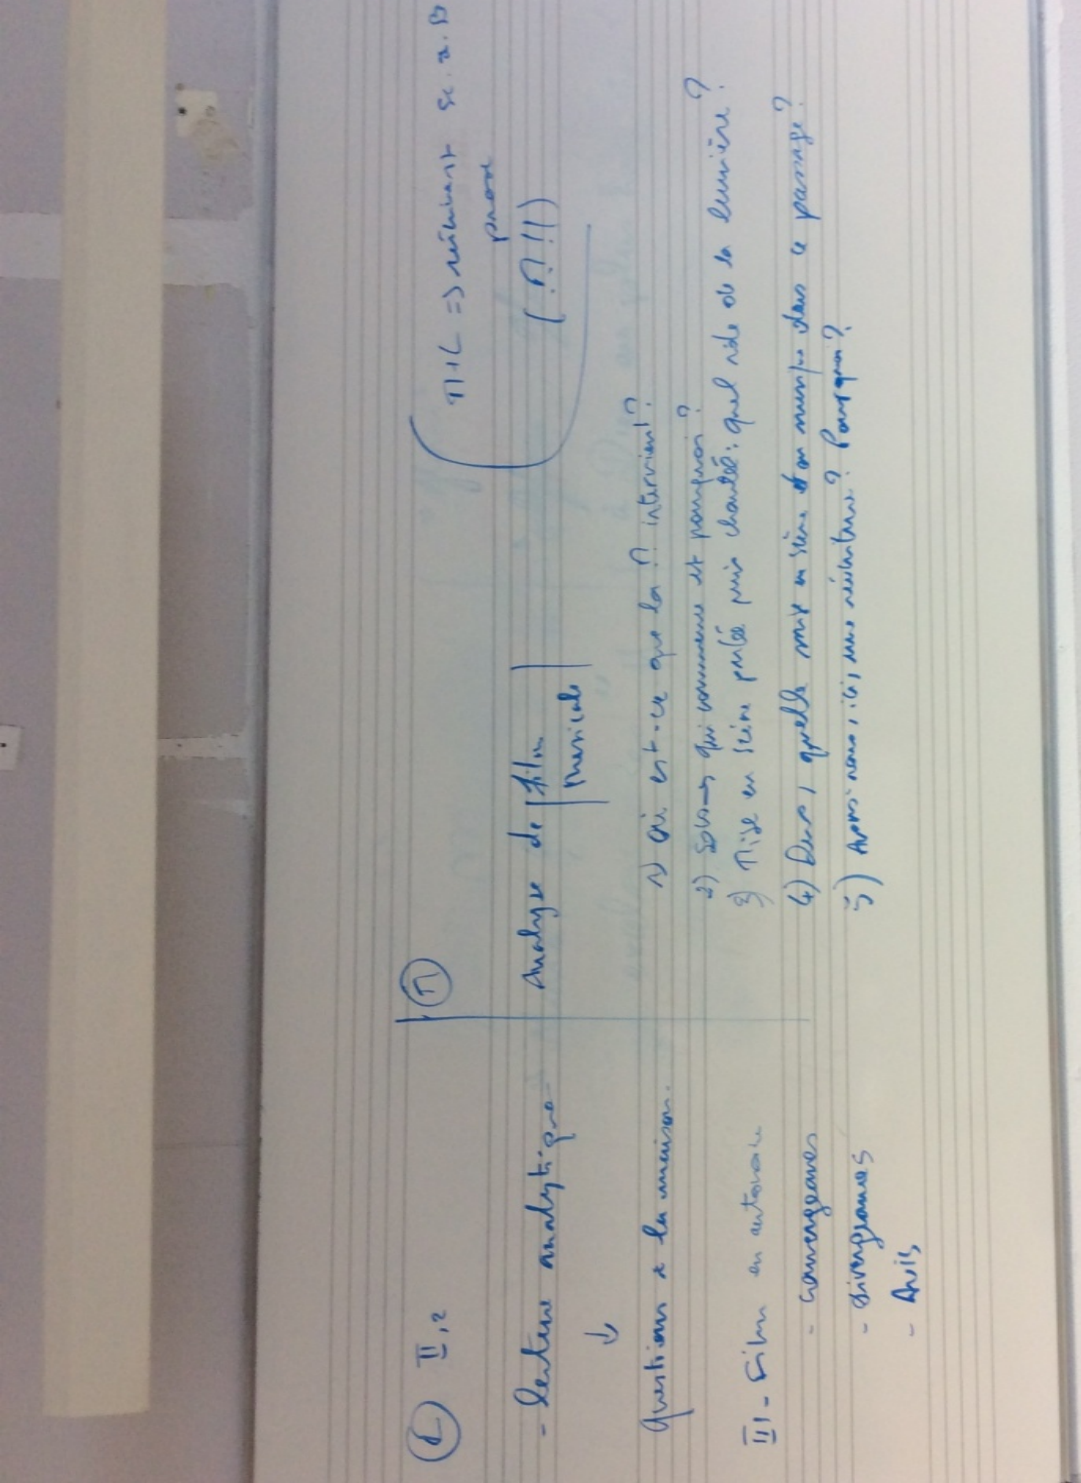 Ⓛ II,2
- lecture analytique
↓
Questions à la maison.
III - Film en autonomie
- convergences
- divergences
- Avis
Ⓜ
Analyse de film
musicale
1) Où est-ce que la M intervient ?
2) qui commence et pourquoi ?
3) Mise en scène parlée puis chantée : quel rôle de la lumière ?
4) Duo, quelle mise en scène dans ce passage ?
5) Avons-nous, ici, une ? Pourquoi ?
M+L =>
(M !!)